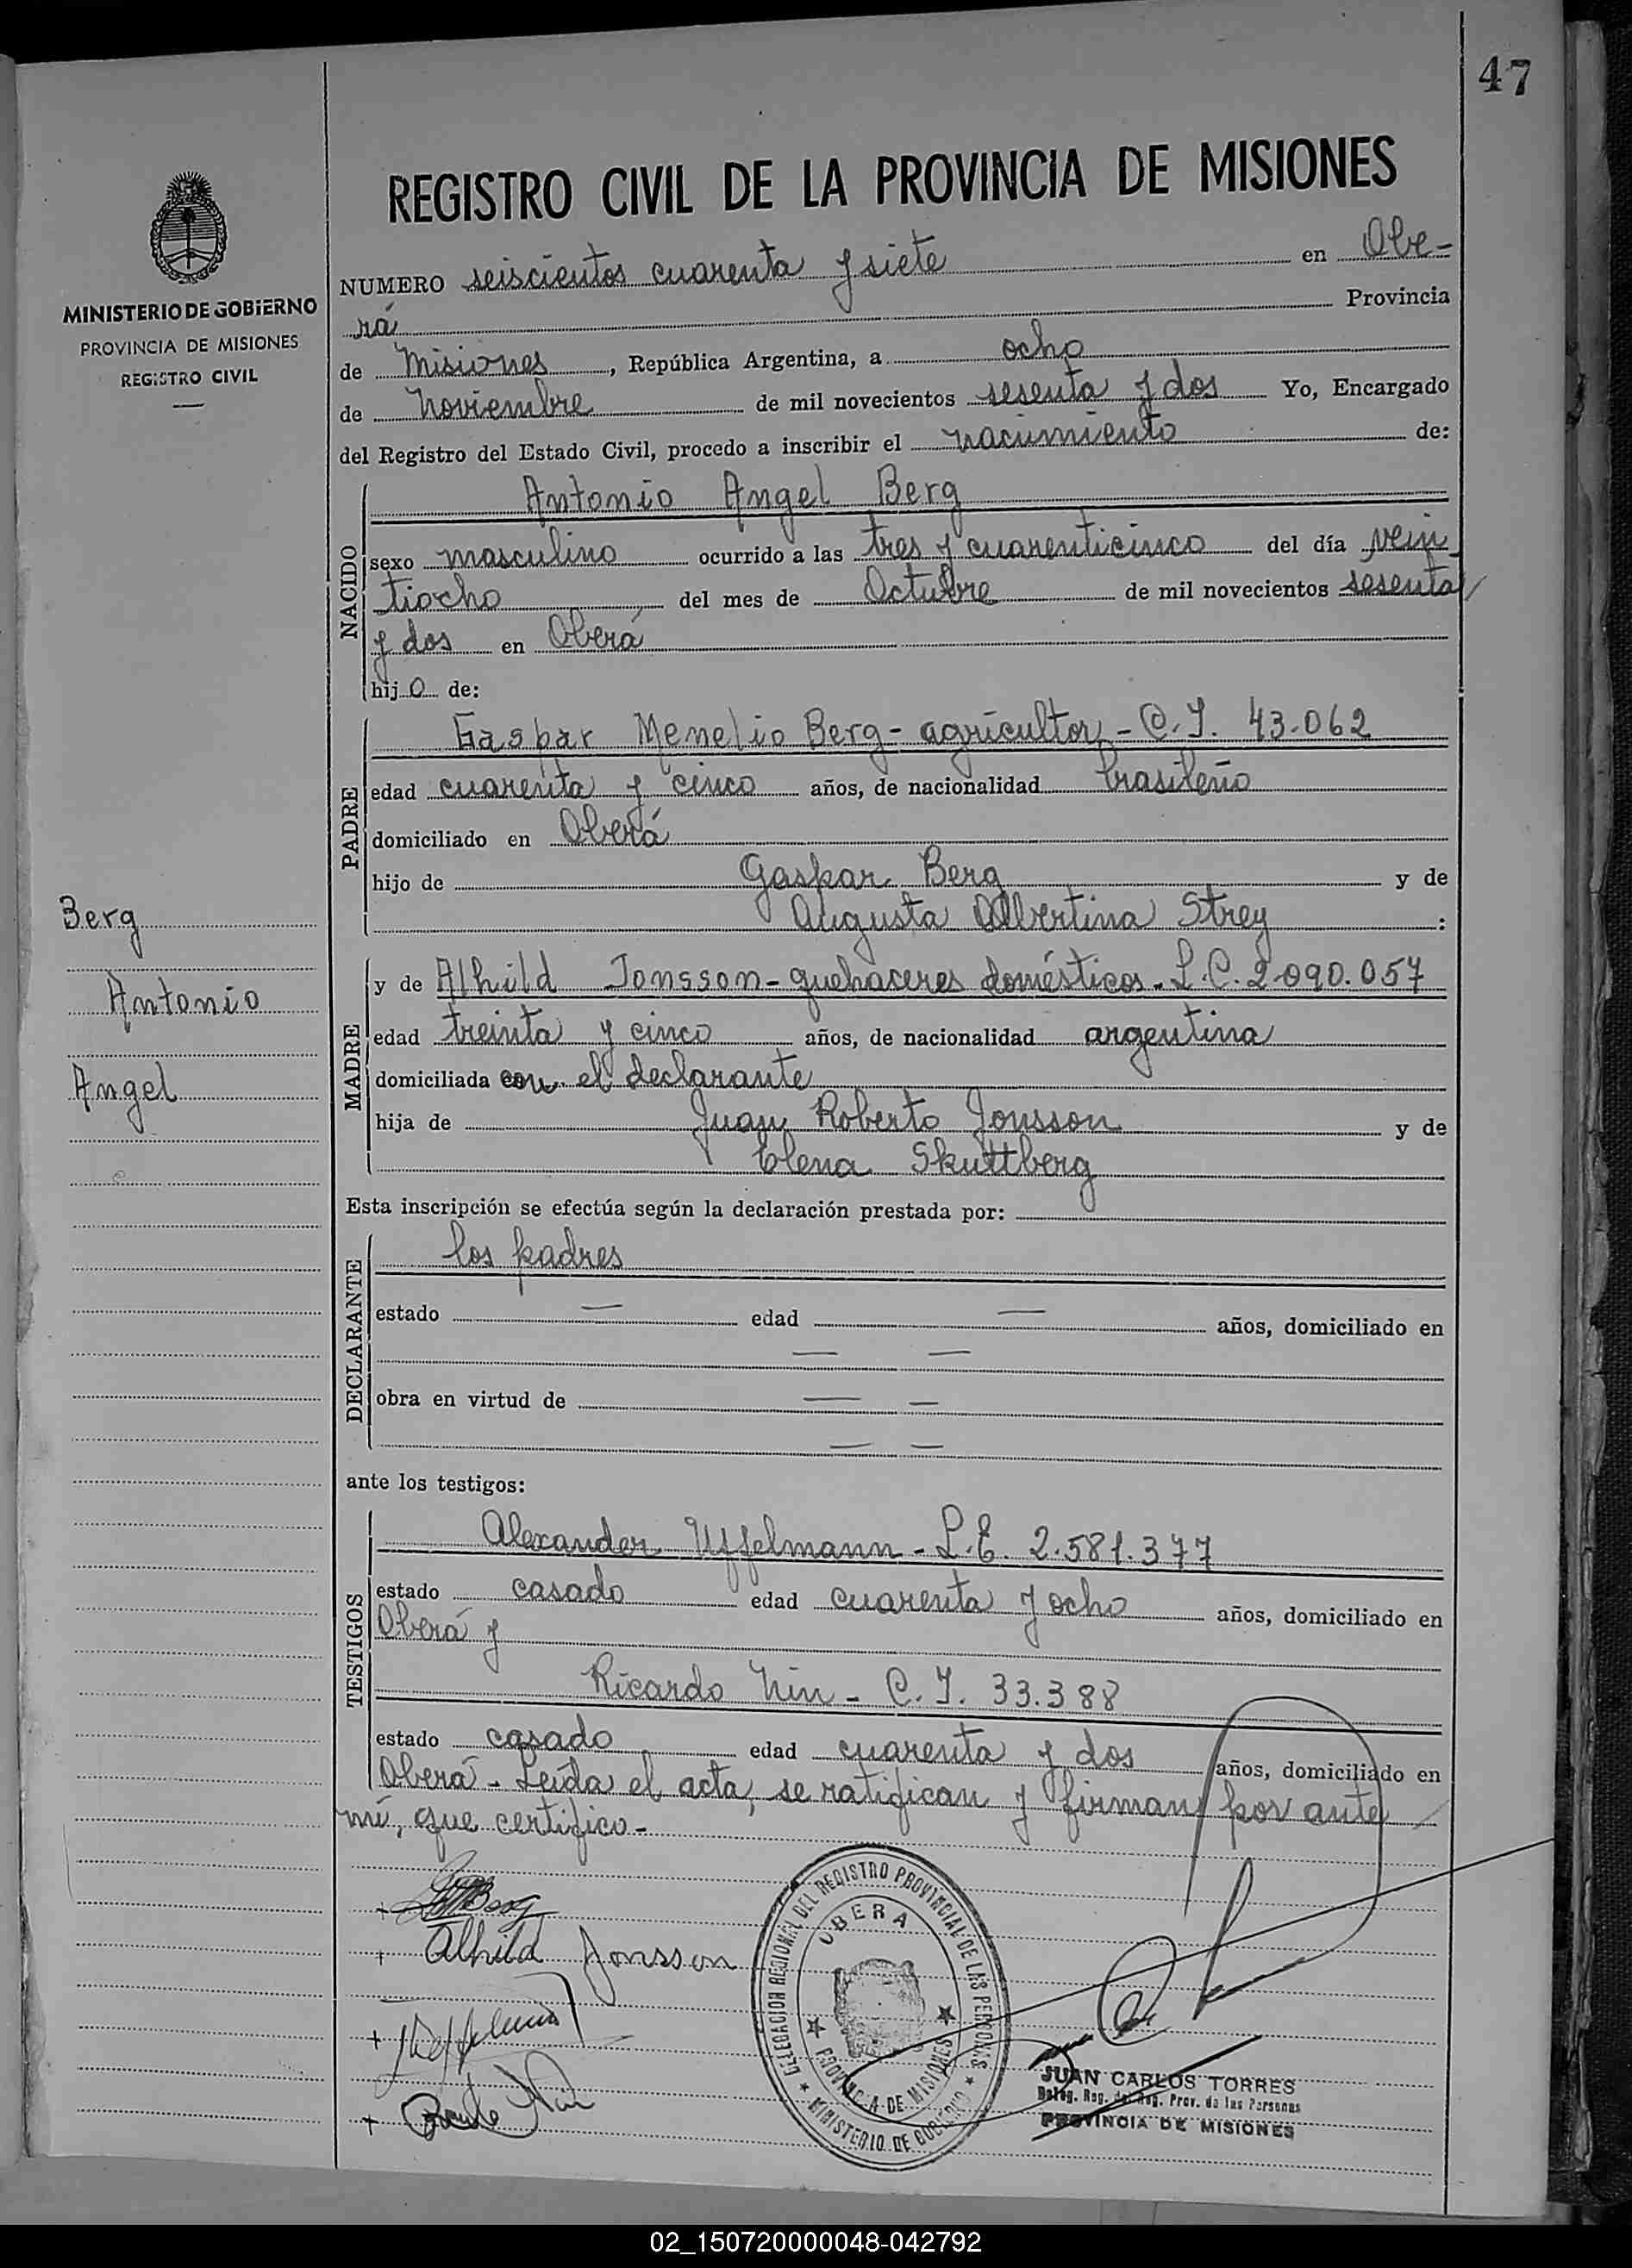 47
REGISTRO CIVIL DE LA PROVINCIA DE MISIONES
MINISTERIO DE GOBIERNO
PROVINCIA DE MISIONES
REGISTRO CIVIL
NUMERO seiscientos cuarenta y siete en Obe-
rá Provincia
de Misiones, República Argentina, a ocho
de Noviembre de mil novecientos sesenta y dos Yo, Encargado
del Registro del Estado Civil, procedo a inscribir el nacimiento de:
NACIDO
Antonio Angel Berg
sexo masculino ocurrido a las tres y cuarenticinco del día vein
tiocho del mes de Octubre de mil novecientos sesenta
y dos en Oberá
hijo de:
PADRE
Gaspar Menelio Berg - agricultor - C.I. 43.062
edad cuarenta y cinco años, de nacionalidad brasileño
domiciliado en Oberá
hijo de Gaspar Berg y de
Augusta Albertina Strey :
Berg
Antonio
Angel
MADRE
y de Alhild Jonsson - quehaceres domésticos - L.C. 2.090.057
edad treinta y cinco años, de nacionalidad argentina
domiciliada con el declarante
hija de Juan Roberto Jonsson y de
Elena Skuttberg
Esta inscripción se efectúa según la declaración prestada por:
DECLARANTE
los padres
estado — edad — años, domiciliado en
— —
obra en virtud de — —
— —
ante los testigos:
TESTIGOS
Alexander Uffelmann - L.E. 2.581.377
estado casado edad cuarenta y ocho años, domiciliado en
Oberá y
Ricardo Nin - C.I. 33.388
estado casado edad cuarenta y dos años, domiciliado en
Oberá - Leída el acta, se ratifican y firman por ante
mí, que certifico -
+ Berg
+ Alhild Jonsson
+
+
DELEGACION REGIONAL DEL REGISTRO PROVINCIAL DE LAS PERSONAS
OBERA
PROVINCIA DE MISIONES
MINISTERIO DE GOBIERNO
JUAN CARLOS TORRES
Deleg. Reg. del Reg. Prov. de las Personas
PROVINCIA DE MISIONES
02_150720000048-042792